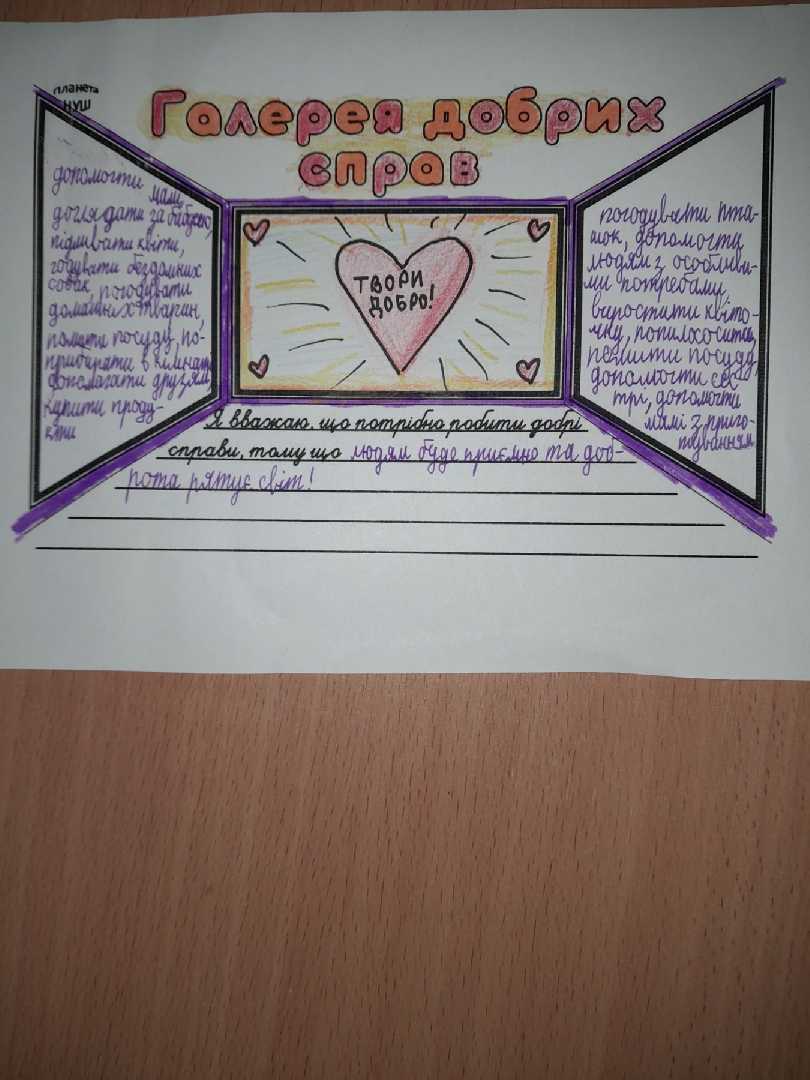 планета
НУШ
Галерея добрих
справ
допомогти мамі
доглядати за бабусею,
підливати квіти,
годувати бездомних
собак, погодувати
домашніх тварин,
помити посуду, по-
прибирати в кімнаті
допомагати друзям,
купити проду-
кти
ТВОРИ
ДОБРО!
погодувати пта-
шок, допомогти
людям з особливи-
ми потребами
виростити квіто-
чку, попилососити,
помити посуду,
допомогти сес
трі, допомогти
мамі з приго-
туванням
Я вважаю, що потрібно робити добрі
справи, тому що людям буде приємно та доб-
рота рятує світ!